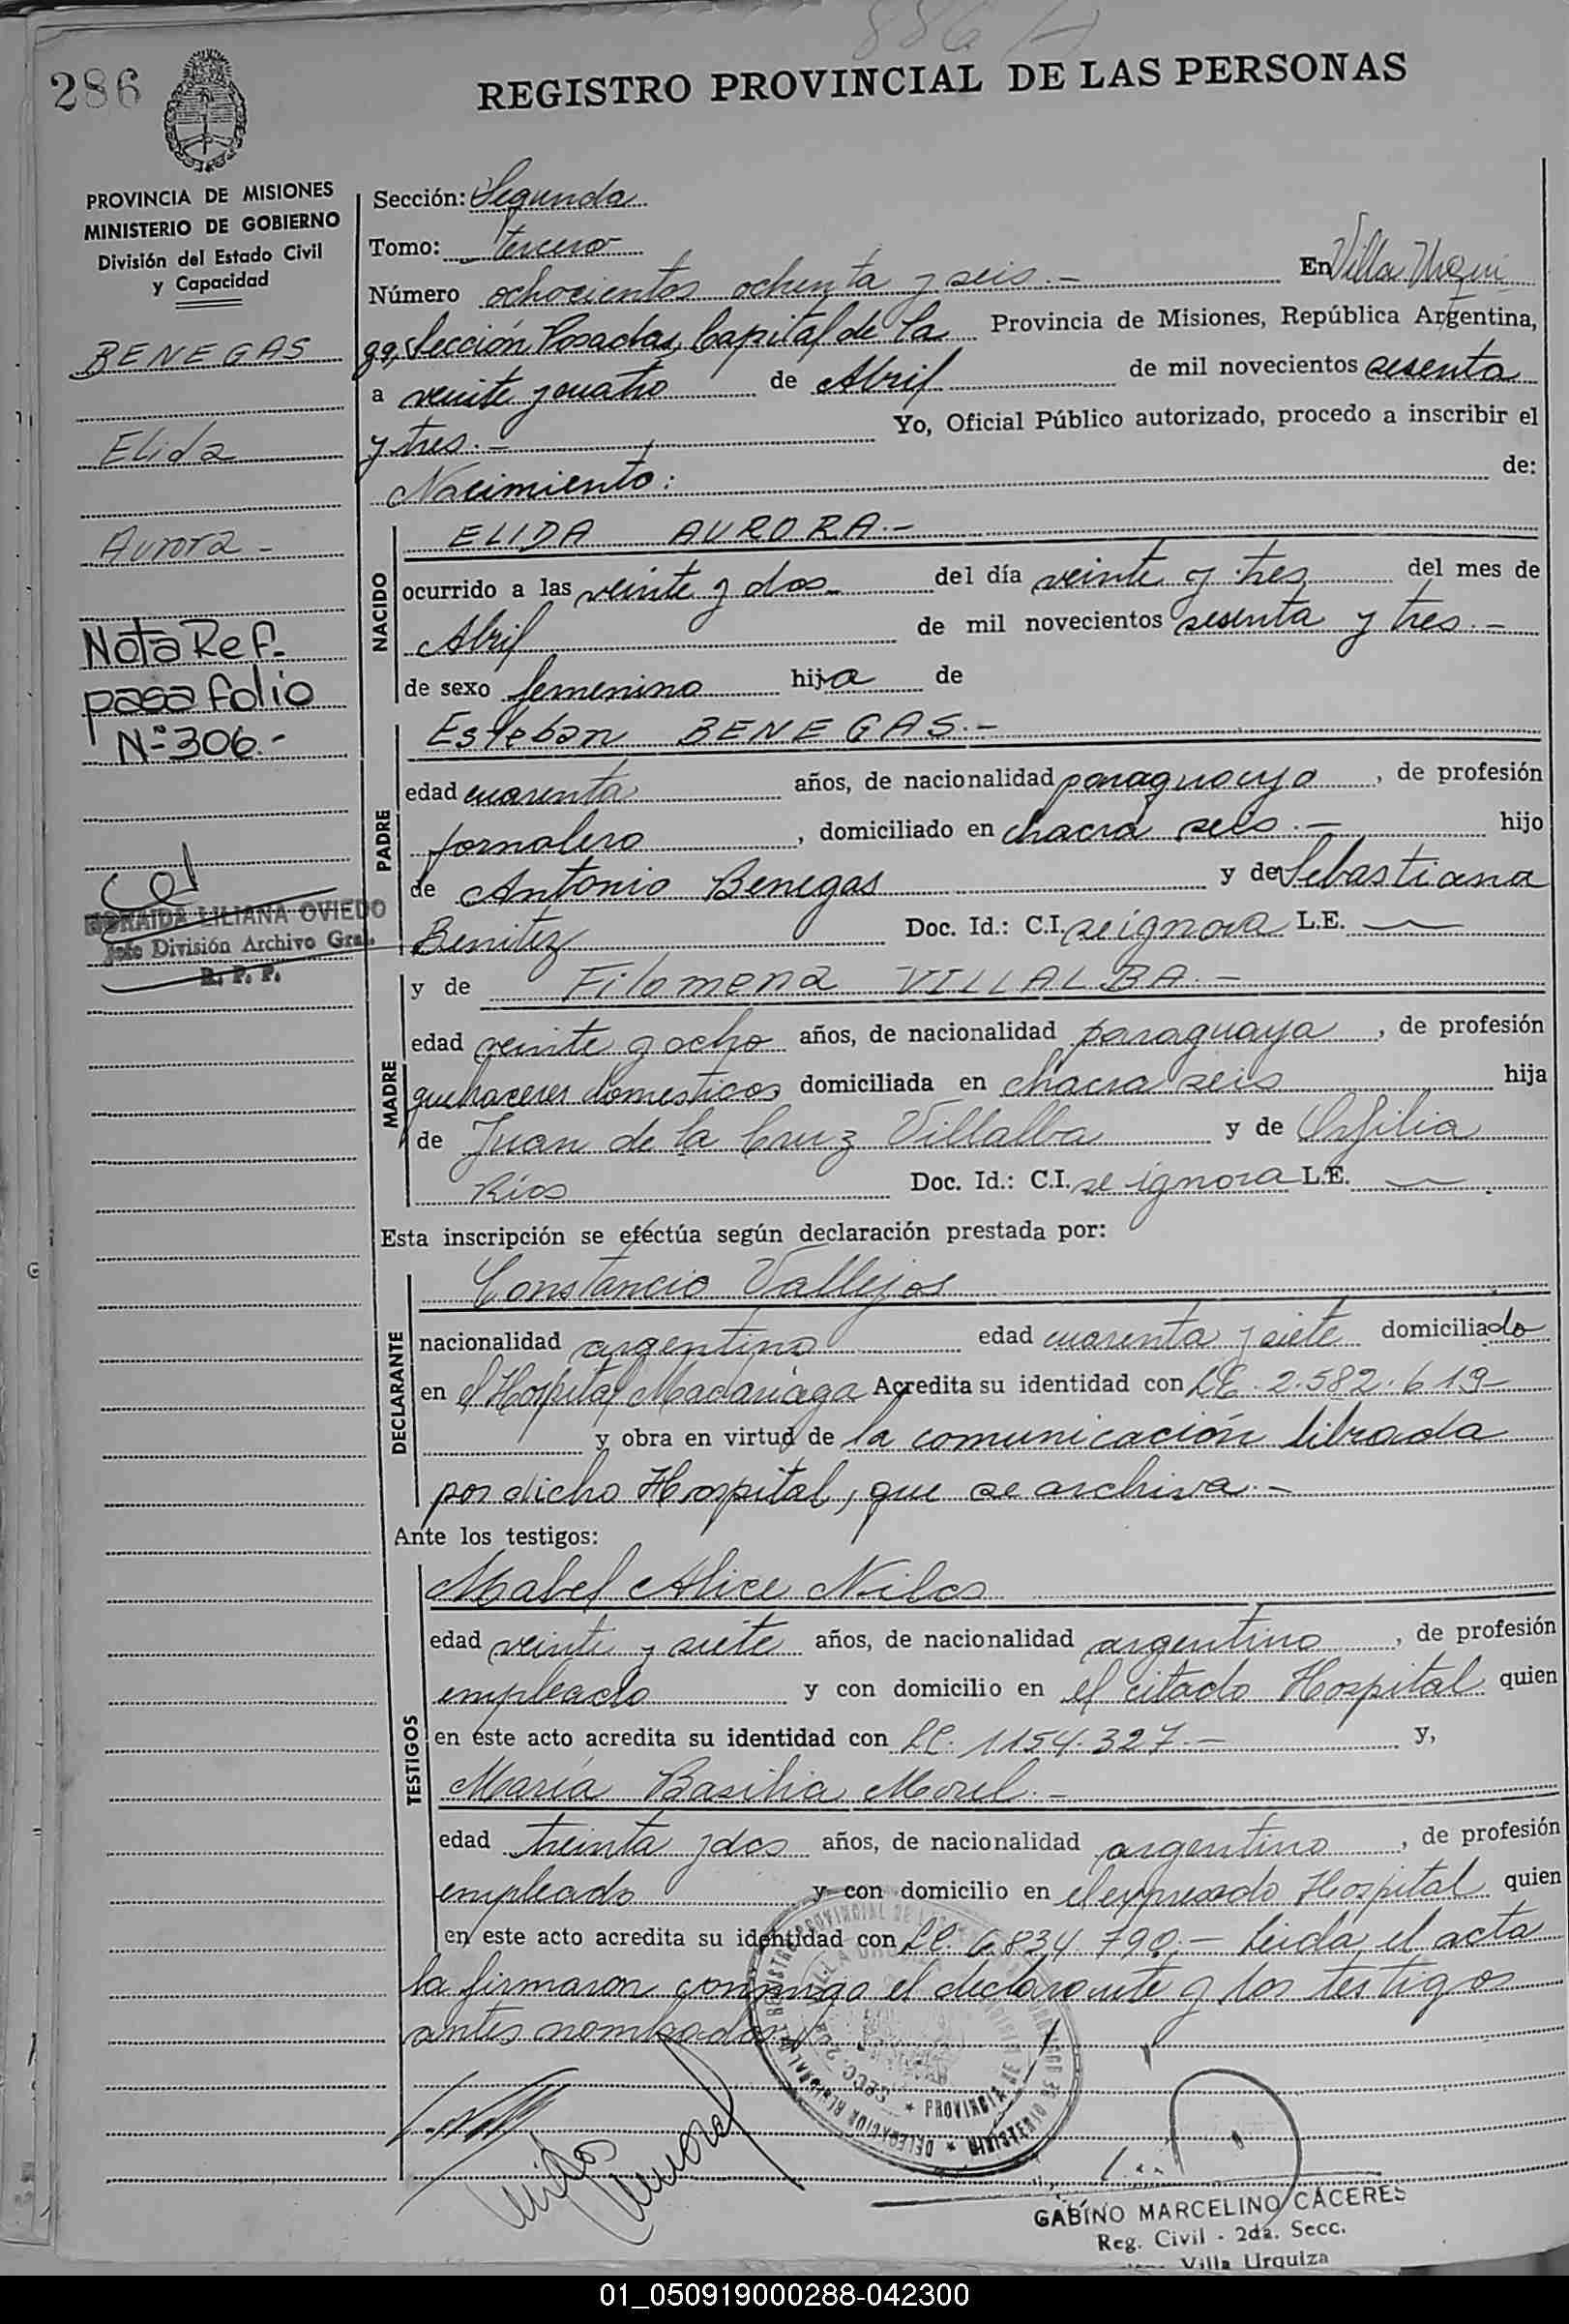 886
286
REGISTRO PROVINCIAL DE LAS PERSONAS
PROVINCIA DE MISIONES
MINISTERIO DE GOBIERNO
División del Estado Civil
y Capacidad
BENEGAS
Elida
Aurora -
Nota Ref.
pasa folio
Nº 306.-
LILIANA OVIEDO
Jefe División Archivo Gral.
R. P. P.
Sección: Segunda
Tomo: Tercero
Número ochocientos ochenta y seis.- En Villa Urqui
za, Sección Posadas, Capital de la Provincia de Misiones, República Argentina,
a veinte y cuatro de Abril de mil novecientos sesenta
y tres.- Yo, Oficial Público autorizado, procedo a inscribir el
Nacimiento: de:
NACIDO
ELIDA AURORA.-
ocurrido a las veinte y dos del día veinte y tres del mes de
Abril de mil novecientos sesenta y tres.-
de sexo femenino hija de
PADRE
Esteban BENEGAS.-
edad cuarenta años, de nacionalidad paraguayo, de profesión
jornalero, domiciliado en chacra seis.- hijo
de Antonio Benegas y de Sebastiana
Benitez Doc. Id.: C.I. se ignora L.E. —
MADRE
y de Filomena VILLALBA.-
edad veinte y ocho años, de nacionalidad paraguaya, de profesión
quehaceres domesticos domiciliada en chacra seis hija
de Juan de la Cruz Villalba y de
Ríos Doc. Id.: C.I. se ignora L.E. —
Esta inscripción se efectúa según declaración prestada por:
DECLARANTE
Constancio Vallejos
nacionalidad argentino edad cuarenta y siete domiciliado
en el Hospital Madariaga Acredita su identidad con L.E. 2.582.619
y obra en virtud de la comunicación librada
por dicho Hospital, que se archiva.-
Ante los testigos:
TESTIGOS
Mabel Alice
edad veinte y siete años, de nacionalidad argentino, de profesión
empleado y con domicilio en el citado Hospital quien
en este acto acredita su identidad con L.C. 1154.327.- y,
María Basilia Morel.-
edad treinta y dos años, de nacionalidad argentino, de profesión
empleado y con domicilio en el expresado Hospital quien
en este acto acredita su identidad con L.C. 6.834.790.- Leida el acta
la firmaron conmigo el declarante y los testigos
antes nombrados.
GABINO MARCELINO CACERES
Reg. Civil - 2da. Secc.
Villa Urquiza
01_050919000288-042300